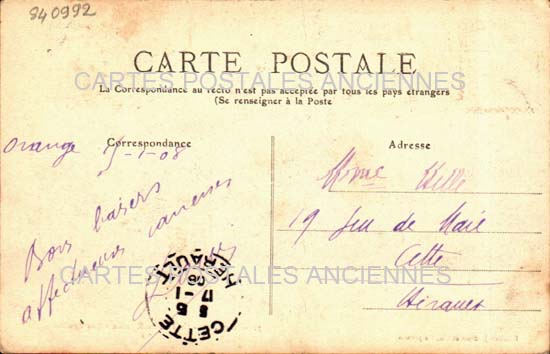 840992
CARTE POSTALE
CARTES POSTALES ANCIENNES
La Correspondance au recto n'est pas acceptée par tous les pays étrangers
(Se renseigner à la Poste
Correspondance
Orange 5-1-08
Bons baisers
affectueuses caresses
Adresse
Mme
19 Jeu de Mail
Cette
Hérault
CARTES POSTALES ANCIENNES
CETTE
HERAULT